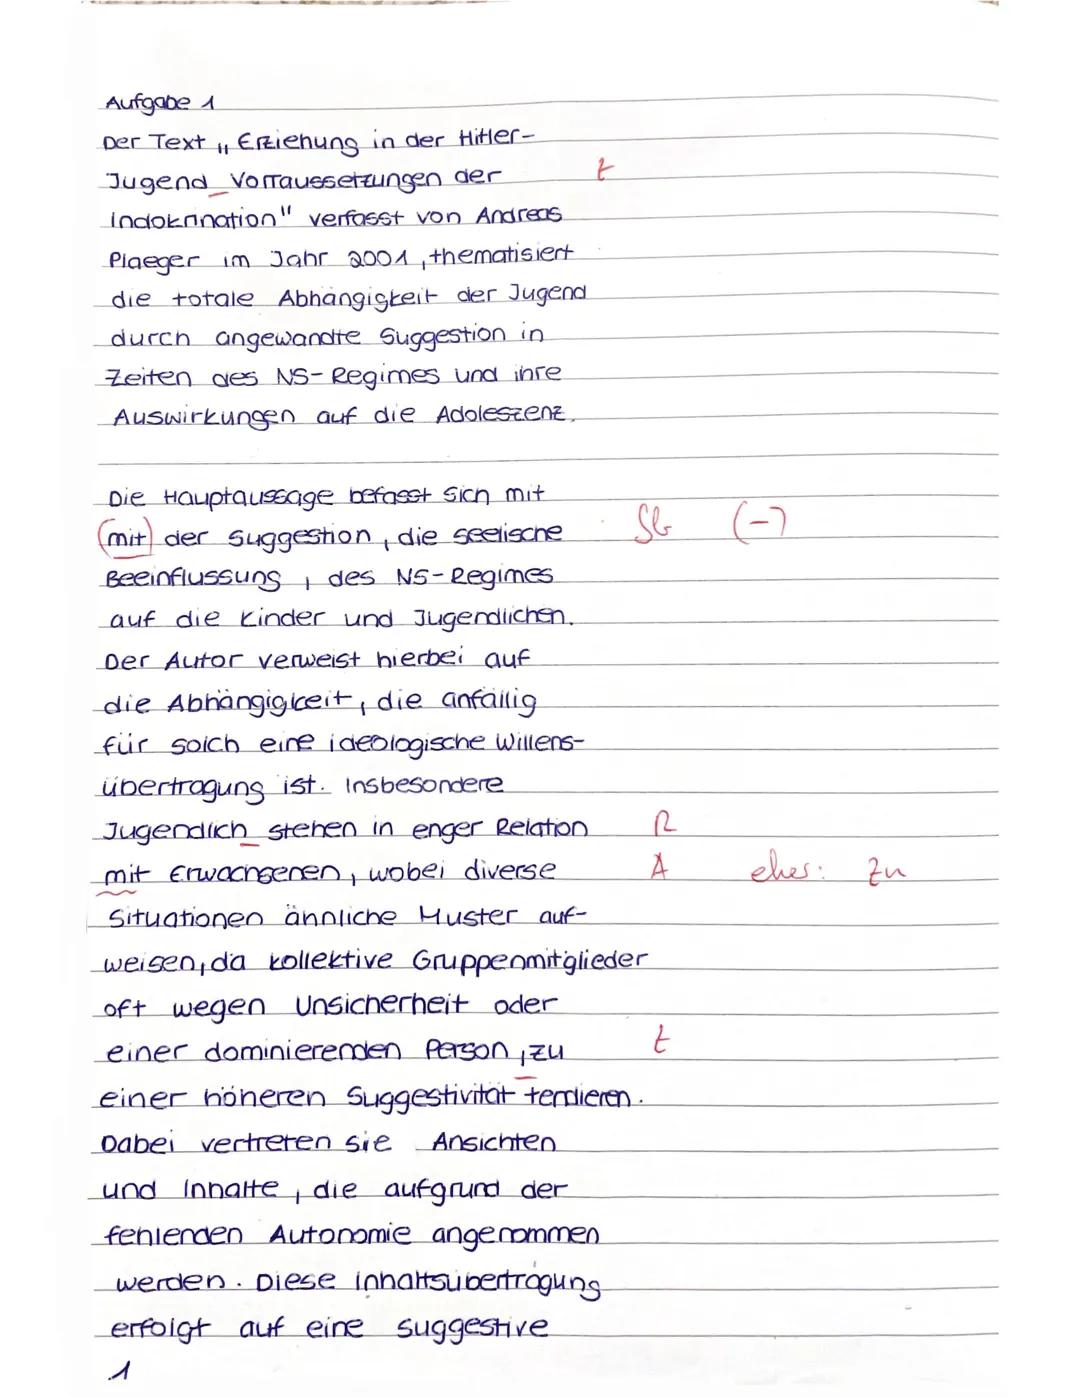 Aufgabe 1
Der Text „Erziehung in der Hitler-
Jugend Vorraussetzungen der Z
Indoktrination" verfasst von Andreas
Plaeger im Jahr 2001, thematisiert
die totale Abhängigkeit der Jugend
durch angewandte Suggestion in
Zeiten des NS-Regimes und ihre
Auswirkungen auf die Adoleszenz.
Die Hauptaussage befasst sich mit
mit der Suggestion, die seelische Sb (-)
Beeinflussung, des NS-Regimes
auf die Kinder und Jugendlichen.
Der Autor verweist hierbei auf
die Abhängigkeit, die anfällig
für solch eine ideologische Willens-
übertragung ist. Insbesondere
Jugendlich stehen in enger Relation R
mit Erwachsenen, wobei diverse A eher: zu
Situationen ähnliche Muster auf-
weisen, da kollektive Gruppenmitglieder
oft wegen Unsicherheit oder
einer dominierenden Person, zu Z
einer höheren Suggestivität tendieren.
Dabei vertreten sie Ansichten
und Inhalte, die aufgrund der
fehlenden Autonomie angenommen
werden. Diese Inhaltsübertragung
erfolgt auf eine suggestive
1